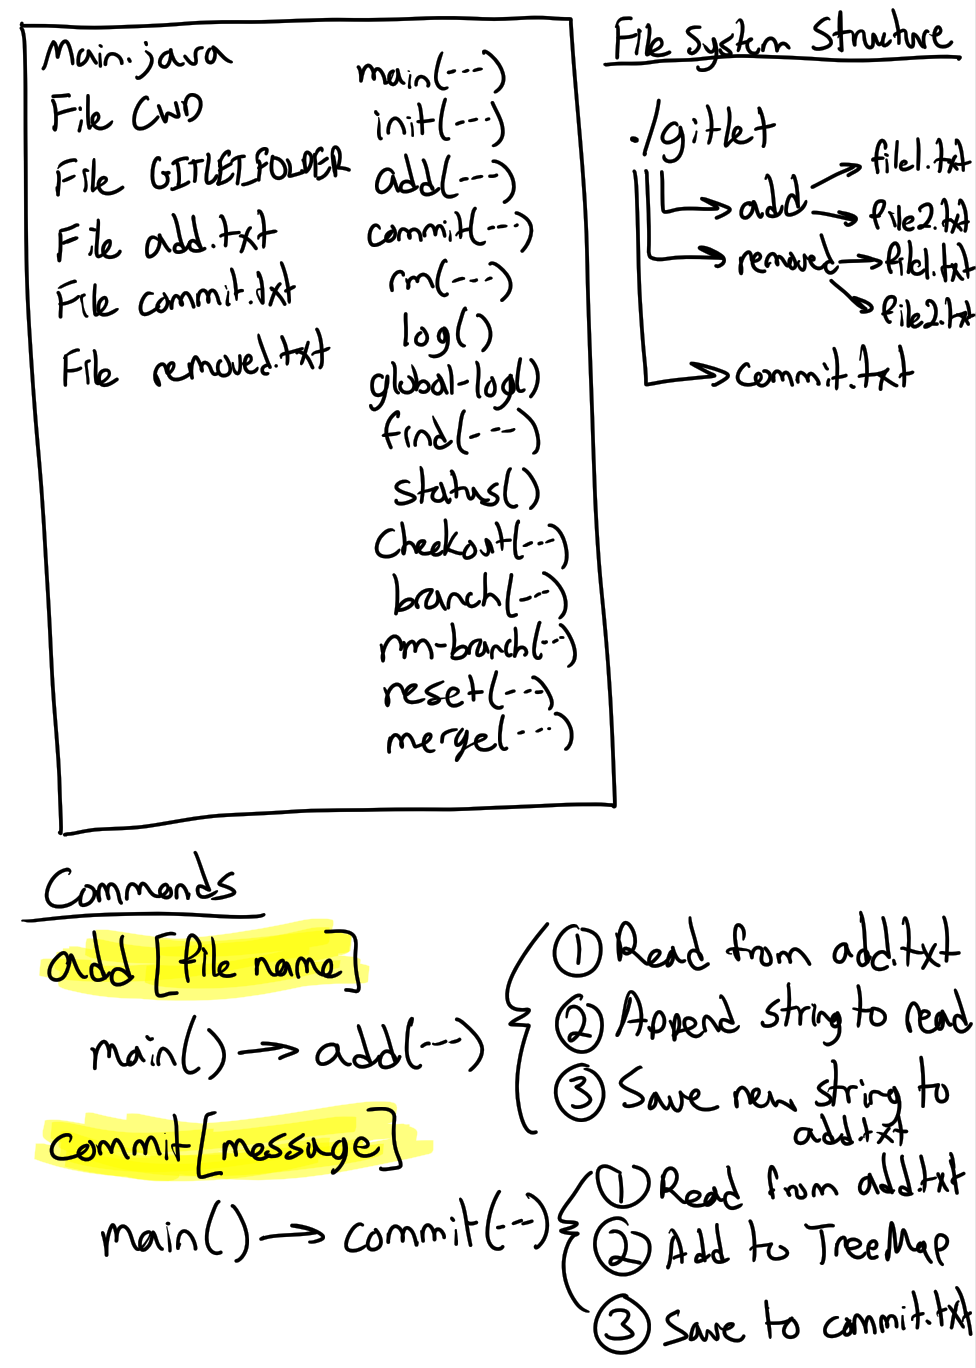 Main.java
File CWD
File GITLET_FOLDER
File add.txt
File commit.txt
File removed.txt
main(---)
init(---)
add(---)
commit(---)
rm(---)
log()
global-log()
find(---)
status()
checkout(---)
branch(---)
rm-branch(---)
reset(---)
merge(---)
File System Structure
./gitlet
add
file1.txt
file2.txt
removed
file1.txt
file2.txt
commit.txt
Commands
add [file name]
main() → add(---)
① Read from add.txt
② Append string to read
③ Save new string to
add.txt
commit [message]
main() → commit(---)
① Read from add.txt
② Add to TreeMap
③ Save to commit.txt